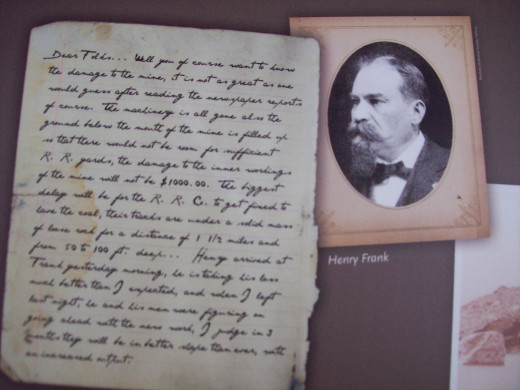 Dear Folks... Well you of course want to know
the damage to the mine, it is not as great as one
would guess after reading the newspaper reports
of course. The machinery is all gone also the
ground below the mouth of the mine is filled up
so that there would not be room for sufficient
R. R. yards, the damage to the inner workings
of the mine will not be $1000.00. The biggest
delay will be for the R. R. C. to get fixed to
leave the coal, their tracks are under a solid mass
of loose rock for a distance of 1 1/2 miles and
from 50 to 100 ft. deep... Henry arrived at
Frank yesterday morning, he is taking his loss
much better than I expected, and when I left
last night, he and his men were figuring on
going ahead with the new work, I judge in 3
months they will be in better shape than ever, with
an increased output.
Henry Frank